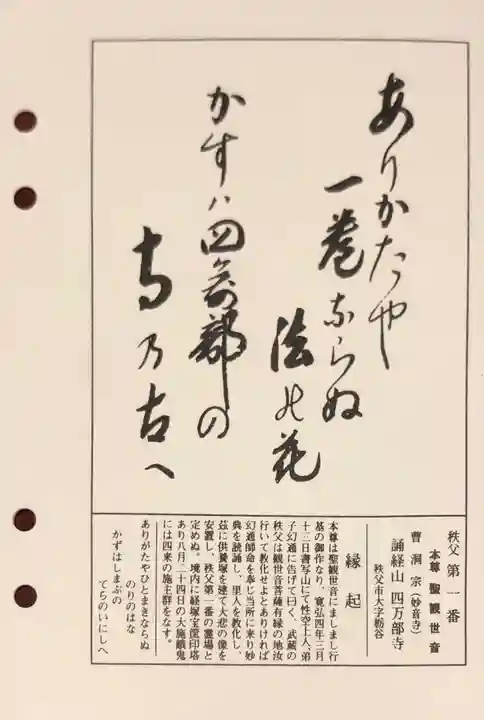 ありかたや
一巻ならぬ
法の花
かすハ四万部の
寺乃古へ
秩父 第一番
本尊 聖観世音
曹洞宗(妙音寺)
誦経山 四万部寺
秩父市大字栃谷
縁起
本尊は聖観世音にましまし行
基の御作なり、寛弘四年三月
十二日書写山にて性空上人、弟
子幻通に告げて曰く、武蔵の
秩父は観世音菩薩有縁の地汝
行いて教化せよとありければ
幻通師命を奉じ当所に来り妙
典を読誦し、里人を教化し、
茲に供養塚を建て大悲の像を
安置し、秩父第一番の霊場と
定めぬ。境内に経塚宝篋印塔
あり八月二十四日の大施餓鬼
には四来の施主群をなす。
ありがたやひとまきならぬ
のりのはな
かずはしまぶの
てらのいにしへ